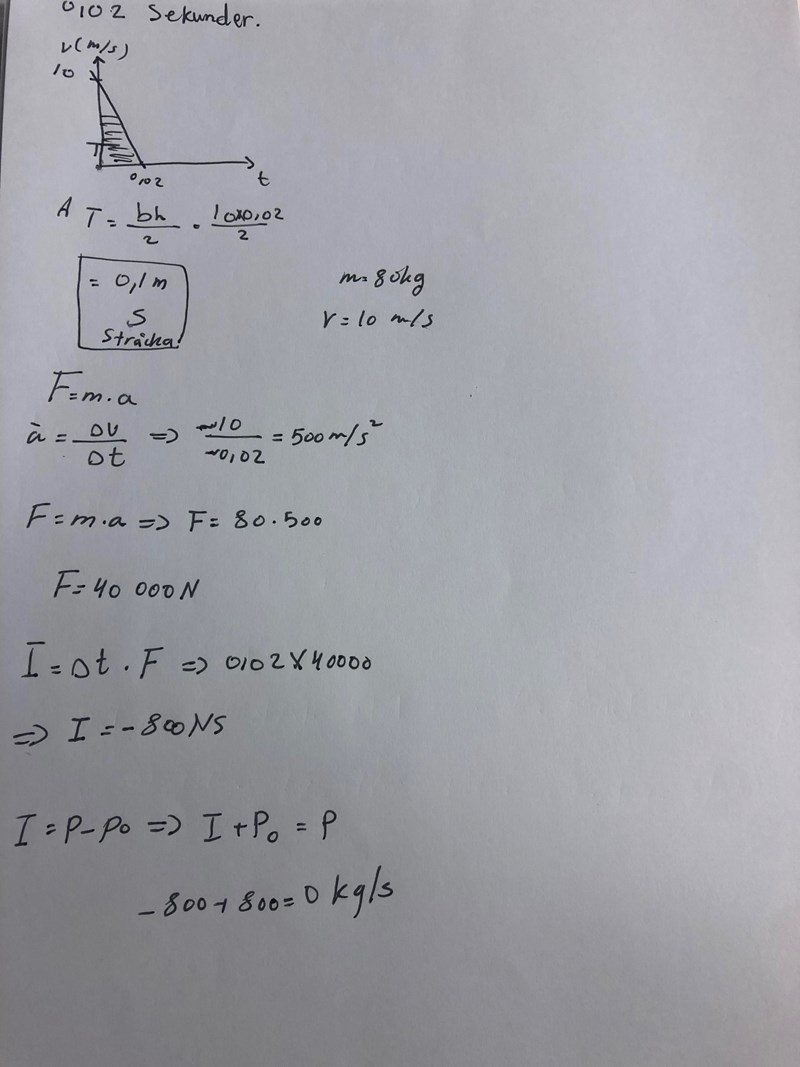 0,02 Sekunder.
v(m/s)
10
T
0,02
t
A T = bh/2 · 10x0,02/2
= 0,1 m
S
Sträcka
m= 80kg
v = 10 m/s
F=m·a
ā = ΔV/Δt => -10/-0,02 = 500 m/s²
F=m·a => F= 80·500
F=40 000N
I = Δt · F => 0,02 X 40000
=> I = -800NS
I = P-P0 => I + P0 = P
-800+800=0 kg/s